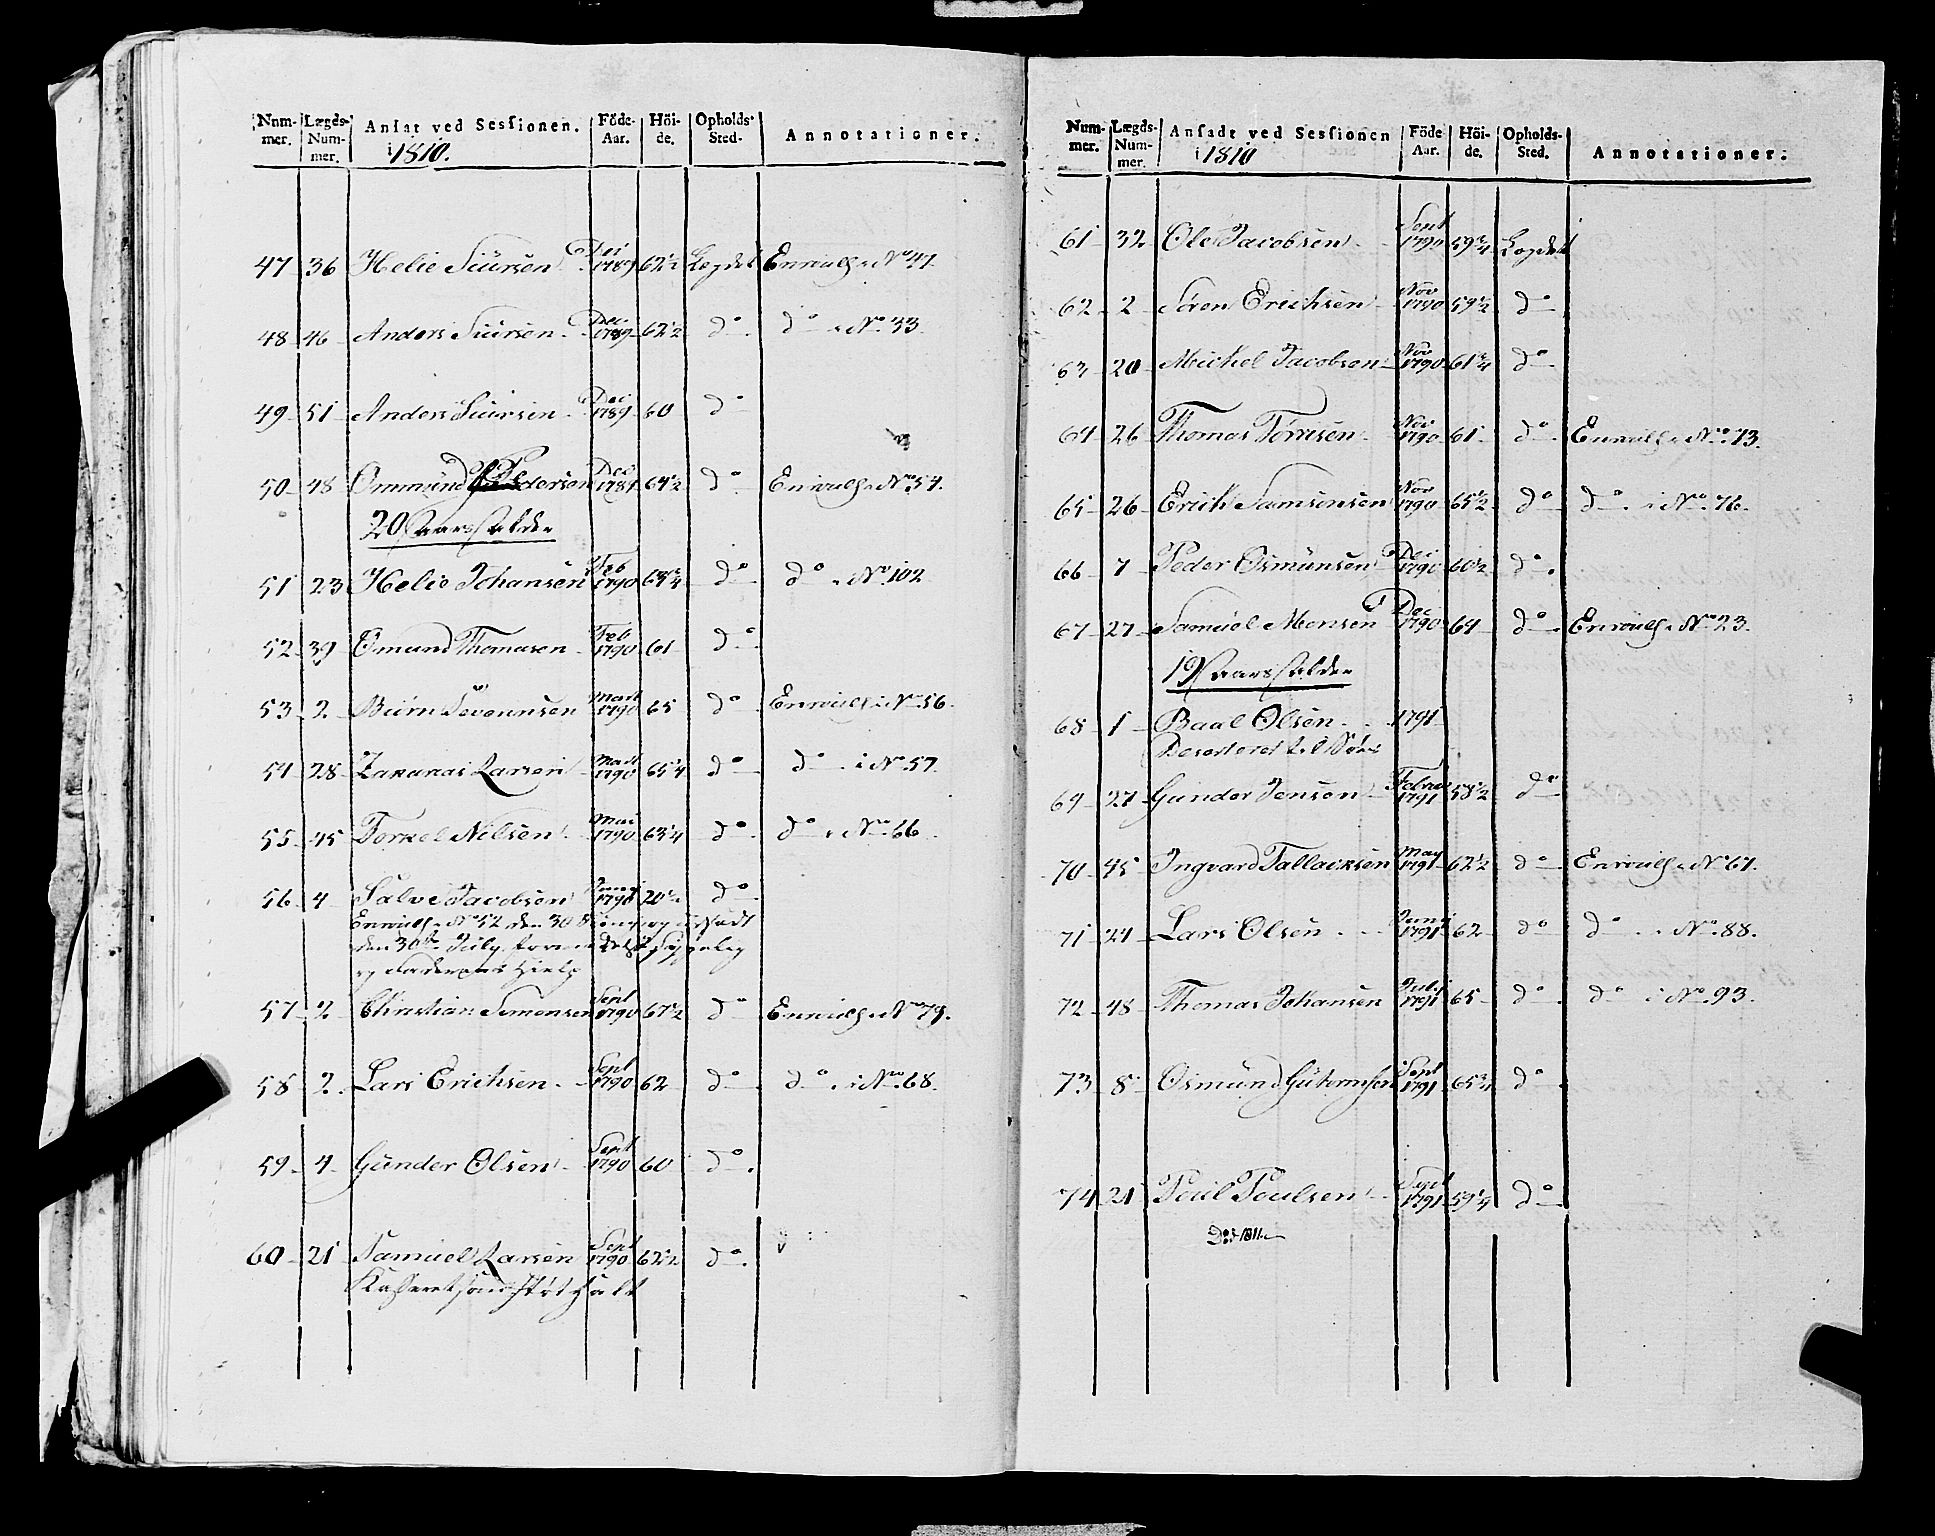 Num- Lægds- Ansat ved Sessionen. Föde- Höi- Opholds- Annotationer.
mer. Num- i 1810. Aar. de. Sted.
mer.
47 36 Helie Siürsen Dec 1789 62½ Lægdet Enroull. i No 47.
48 46 Anders Siursen Dec 1789 62½ do do i No 33.
49 51 Anders Siursen Dec 1789 60 do
50 48 Ommund Pedersen Dec 1789 64½ do Enroull. i No 54.
20 Aars Alder
51 23 Helie Johansen Feb 1790 do do i No 102
52 39 Omund Thomasen Feb 1790 61 do
53 2 Biörn Tevennsen Mart 1790 65 do Enroull. i No 56.
54 28 Zakarias Larsen Mart 1790 65¼ do do i No 57.
55 45 Torkel Nilsen Mai 1790 63¼ do do i No 66.
56 4 Salve Jacobsen Junij 1790 do
Enroull. i No 52 den 30
den 30te July formedelst
og Faderens Hielp
57 2 Christian Semonsen Sept 1790 67½ do Enroull. i No 79.
58 2 Lars Erichsen Sept 1790 62 do do i No 68.
59 4 Günder Olsen Sept 1790 60 do
60 21 Samuel Larsen Sept 1790 62½ do
Kasseret
Num- Lægds- Ansadt ved Sessionen Föde Höi- Opholds- Annotationer.
mer. Num- i 1810 Aar. de. Sted.
mer.
61 32 Ole Jacobsen Sept 1790 59¾ Lægdet
62 2 Sören Erichsen Nov 1790 59½ do
63 20 Michel Jacobsen Nov 1790 61¾ do
64 26 Thomas Törrisen Nov 1790 61 do Enroull. i No 73.
65 26 Erich Samsonsen Nov 1790 65½ do do i No 76.
66 7 Peder Osmunsen Dec 1790 60½ do
67 27 Samuel Monsen Dec 1790 64 do Enroull. i No 23.
19 Aars Alder
68 1 Baal Olsen 1791
Deserteret til Söes
69 27 Gunder Jensen Februar 1791 58½ do
70 45 Ingvard Tallacksen May 1791 62½ do Enroull. i No 61.
71 24 Lars Olsen Junij 1791 62 do do i No 88.
72 48 Thomas Johansen Julij 1791 65 do do i No 93.
73 8 Osmund Gutormsen Sept 1791 65¾ do
74 21 Poul Poulsen Sept 1791 59¼ do
Död 1811.